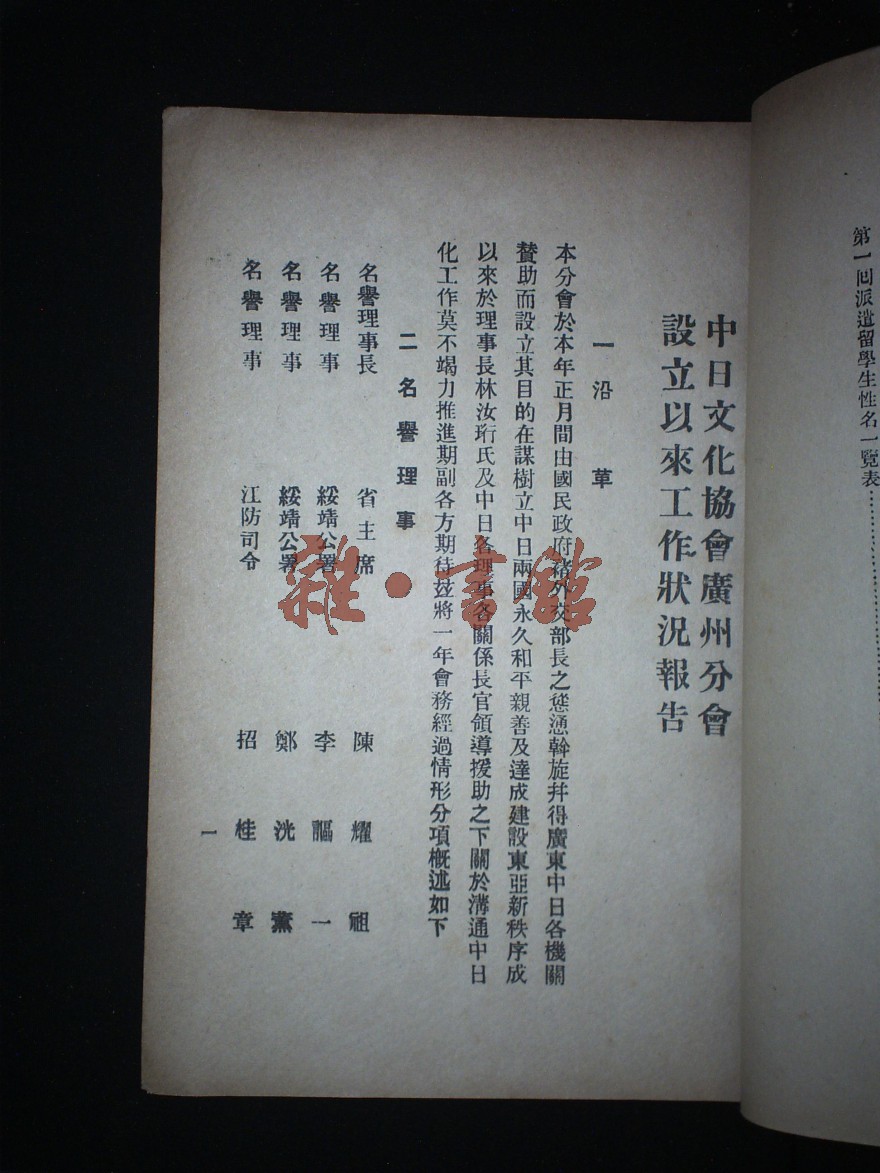 第一回派遣留學生性名一覽表
中日文化協會廣州分會
設立以來工作狀況報告
一 沿 革
本分會於本年正月間由國民政府褚外交部長之慫慂斡旋幷得廣東中日各機關
贊助而設立其目的在謀樹立中日兩國永久和平親善及達成建設東亞新秩序成
以來於理事長林汝珩氏及中日各理事各關係長官領導援助之下關於溝通中日
化工作莫不竭力推進期副各方期待茲將一年會務經過情形分項概述如下
二 名譽理事
名譽理事長 省主席 陳耀祖
名譽理事 綏靖公署 李謳一
名譽理事 綏靖公署 鄭洸薰
名譽理事 江防司令 招桂章
一
雜·書館